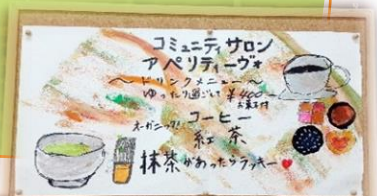 コミュニティサロン
アペリティーヴォ
〜ドリンクメニュー〜
ゆったり過ごして ¥400〜
お菓子付
オーガニック! コーヒー
紅茶
抹茶があったらラッキー